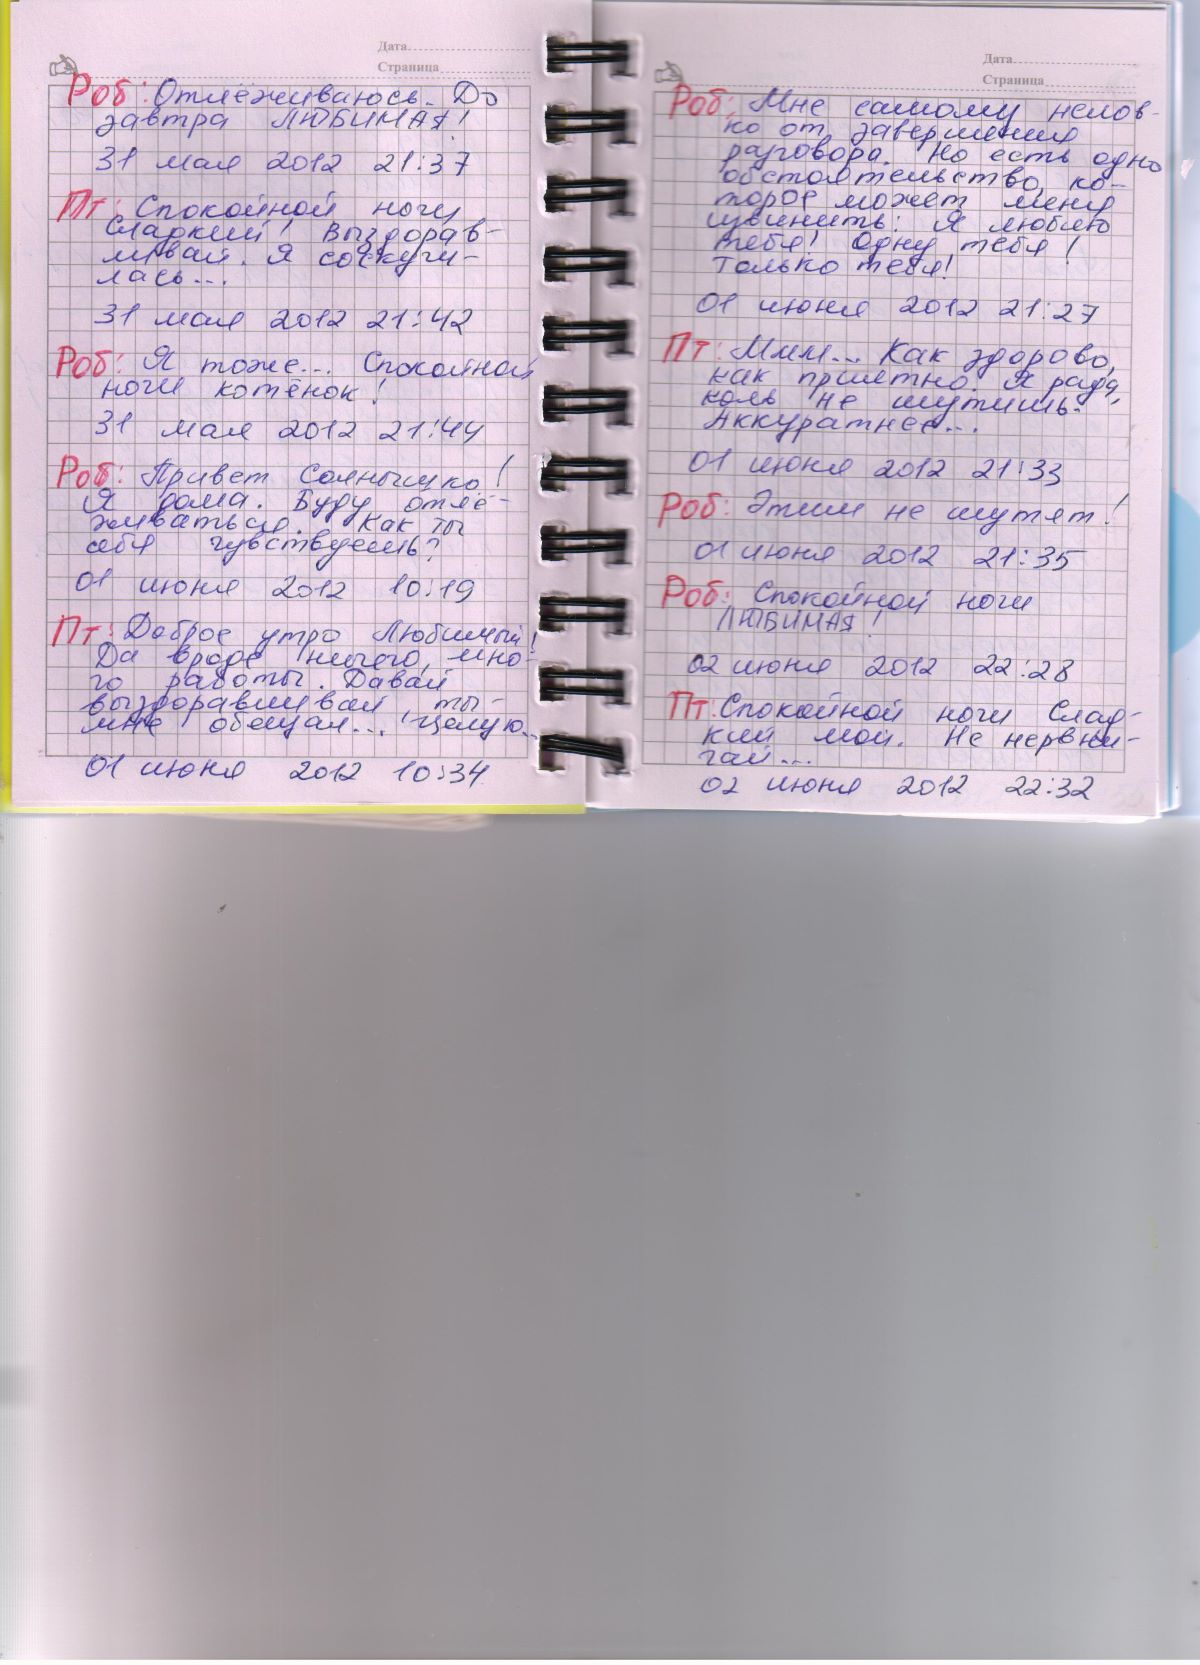 Дата
Страница
Роб: Отлёживаюсь. До
завтра ЛЮБИМАЯ!
31 мая 2012 21:37
Пт: Спокойной ночи
Сладкий! Выздорав-
ливай. Я соскучи-
лась...
31 мая 2012 21:42
Роб: Я тоже... Спокойной
ночи котёнок!
31 мая 2012 21:44
Роб: Привет Солнышко!
Я дома. Буду отлё-
живаться. Как ты
себя чувствуешь?
01 июня 2012 10:19
Пт: Доброе утро Любимый!
Да вроде ничего, мно-
го работы. Давай
выздоравливай, ты
мне обещал... Целую...
01 июня 2012 10:34
Дата
Страница
Роб: Мне самому нелов-
ко от завершения
разговора. Но есть одно
обстоятельство, ко-
торое может меня
извинить: Я люблю
тебя! Одну тебя!
Только тебя!
01 июня 2012 21:27
Пт: Ммм... Как здорово,
как приятно. Я рада,
коль не шутишь.
Аккуратнее...
01 июня 2012 21:33
Роб: Этим не шутят!
01 июня 2012 21:35
Роб: Спокойной ночи
ЛЮБИМАЯ!
02 июня 2012 22:28
Пт: Спокойной ночи Слад-
кий мой. Не нервни-
чай...
02 июня 2012 22:32